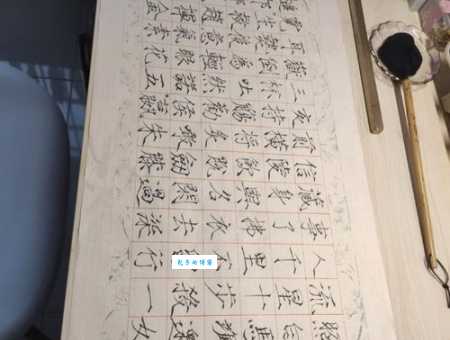 照白馬颯沓如
流星十步殺一
人千里不行
事了拂衣去深
藏身與名閑過
信陵飲脫劍膝
前橫將炙啖朱
亥持觴勸侯嬴
三杯吐然諾五
嶽倒為輕眼花
耳熱後意氣素
霓生救趙揮金